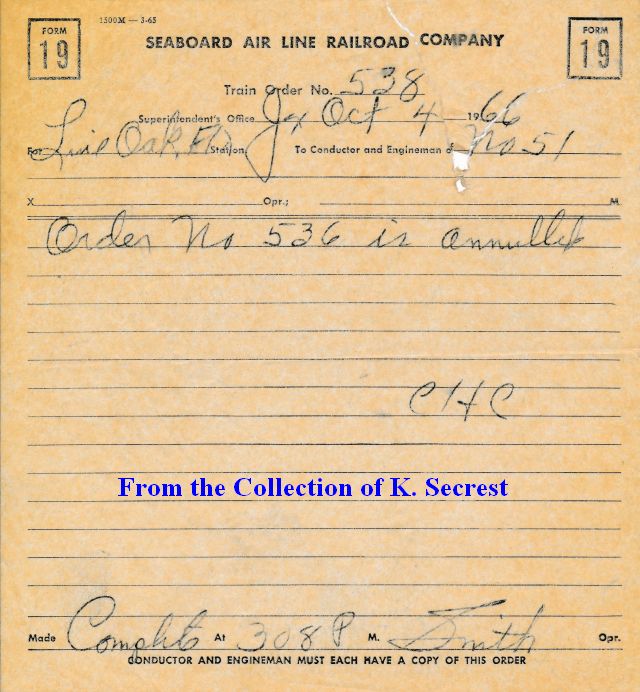 FORM 19 1500M — 3-65 FORM 19
SEABOARD AIR LINE RAILROAD COMPANY
Train Order No. 538
Superintendent's Office Jx Oct 4 1966
For Live Oak, Fla Station, To Conductor and Engineman of No 51
X Opr.; M
Order No 536 is annulled
CHC
From the Collection of K. Secrest
Made Complete At 308 P M. Smith Opr.
CONDUCTOR AND ENGINEMAN MUST EACH HAVE A COPY OF THIS ORDER